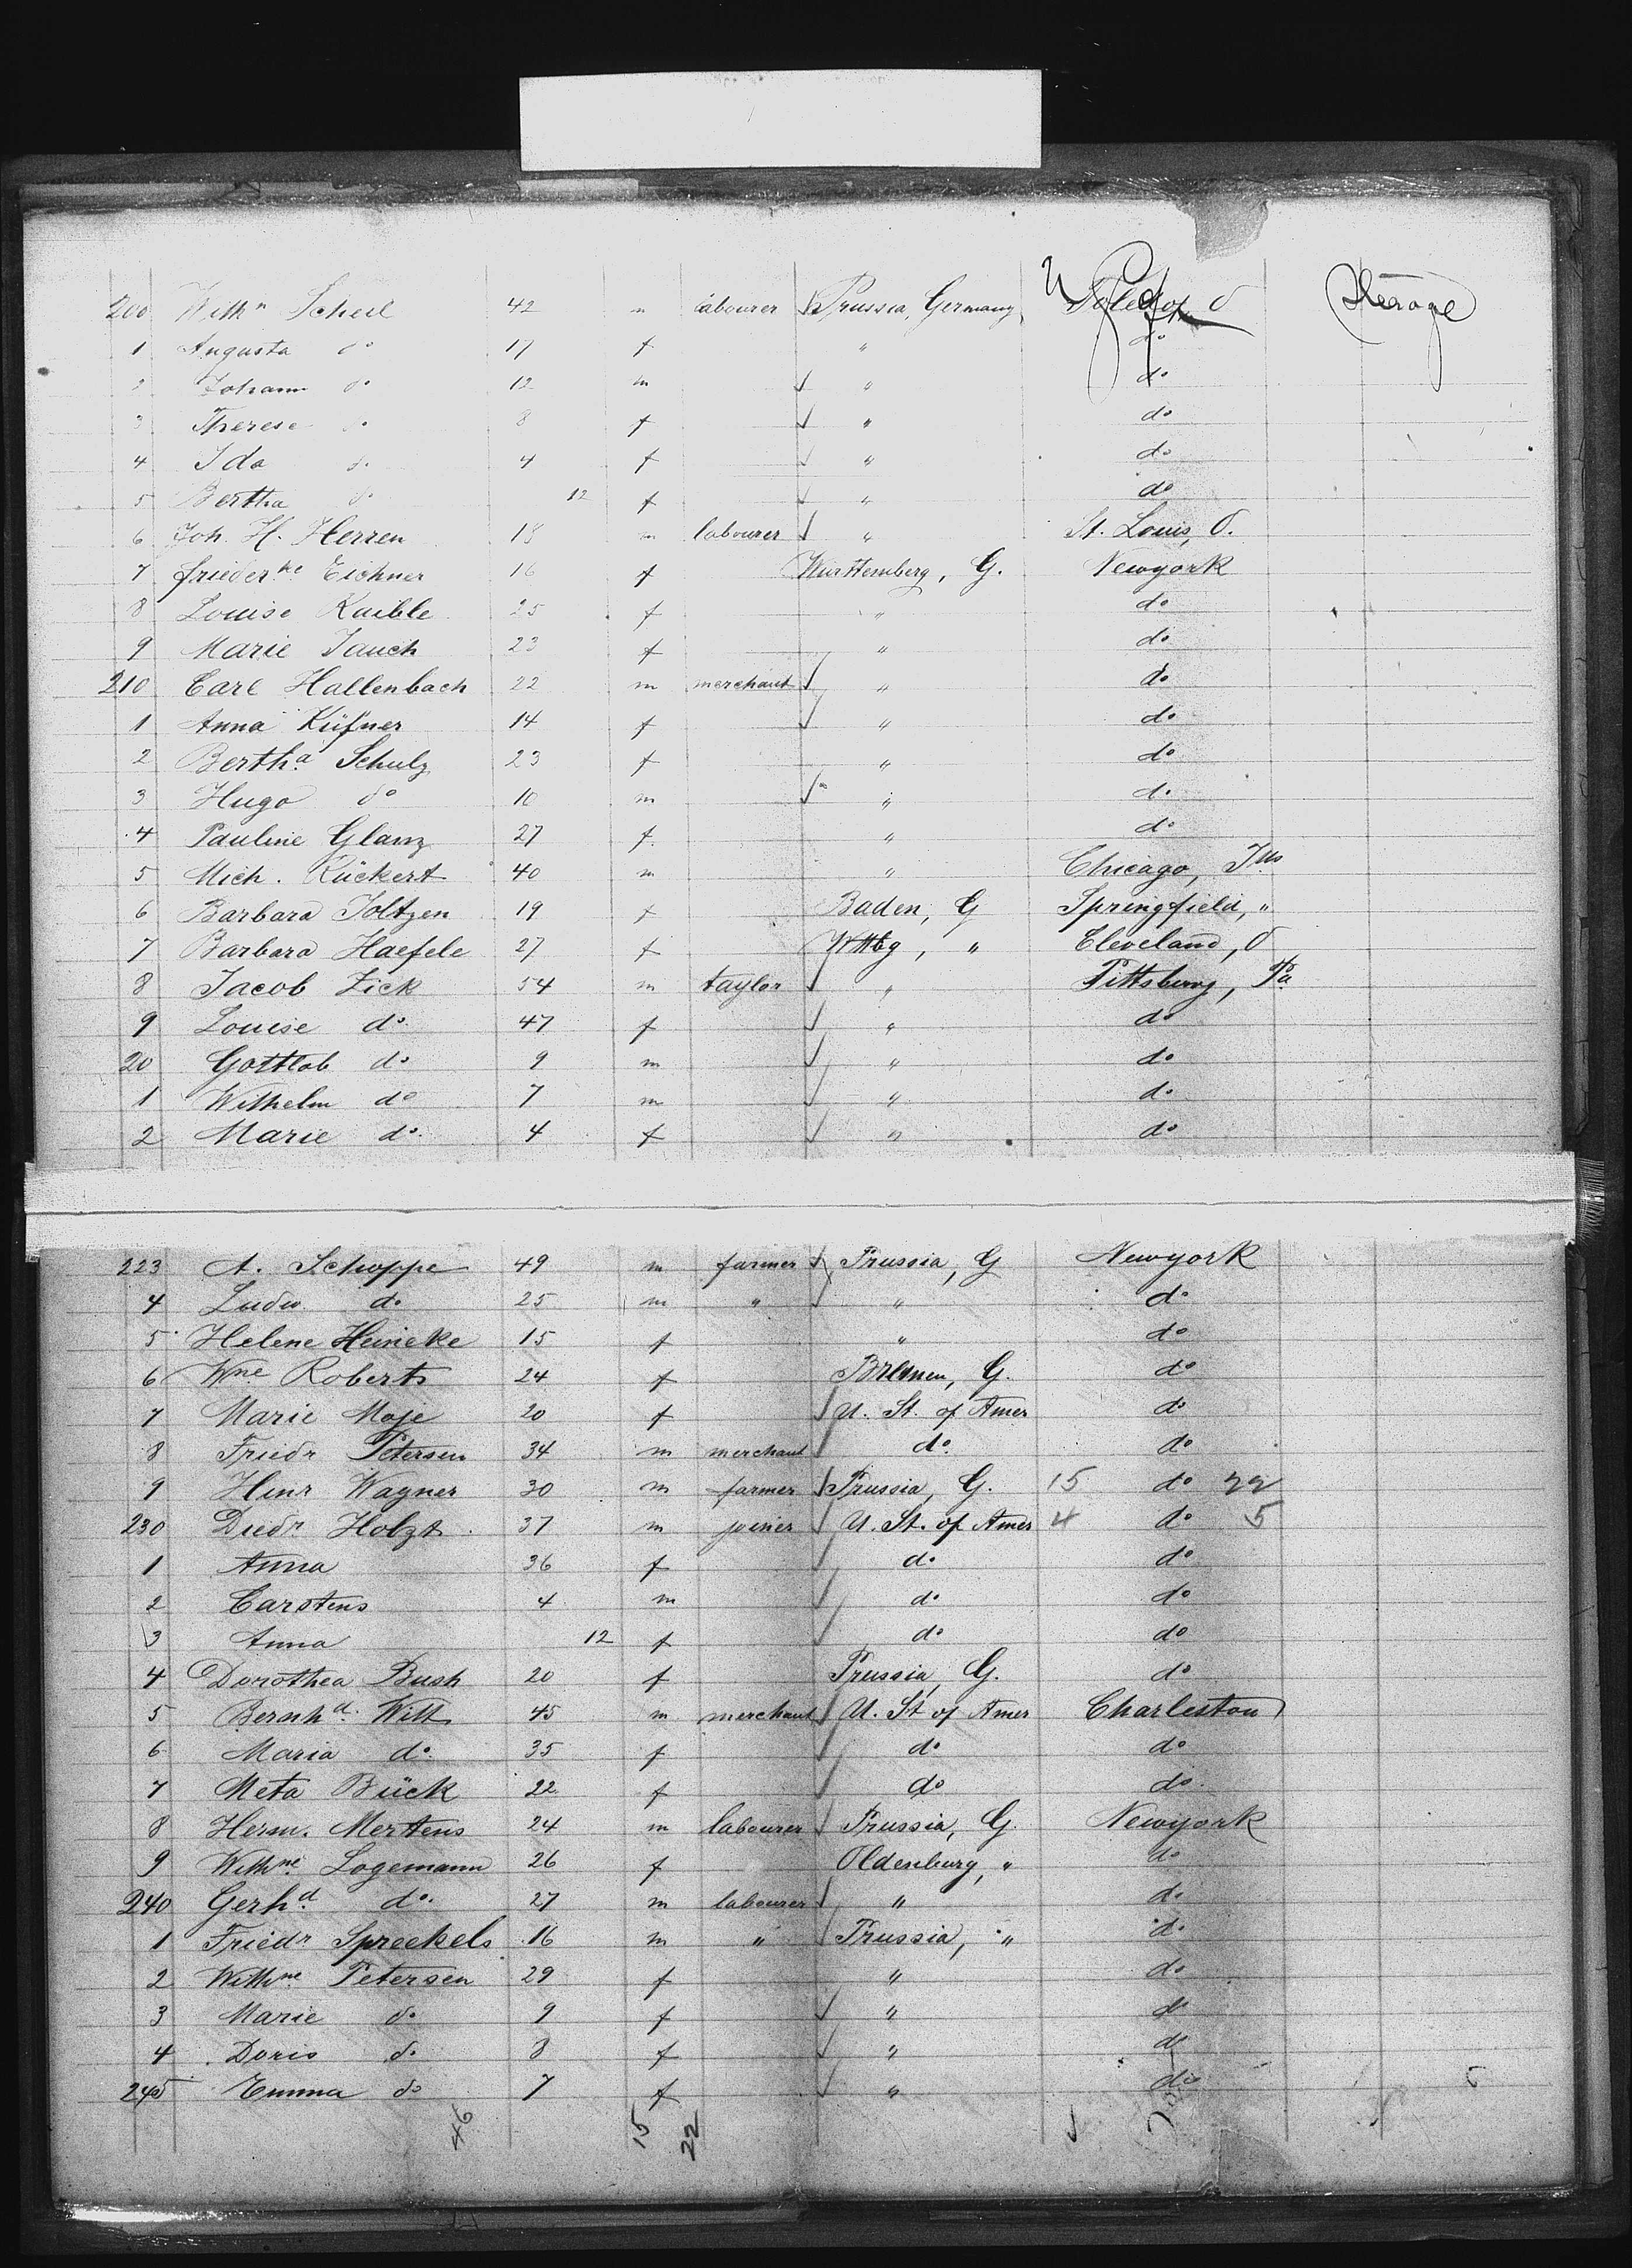 200 Wilhm Scheel 42 m labourer Prussia, Germany Toledo, O Sterage
1 Augusta do 17 f " do
2 Johann do 12 m " do
3 Therese do 8 f " do
4 Ida do 4 f " do
5 Bertha do 12 f " do
6 Joh. H. Herren 18 m labourer " St. Louis, O.
7 Friederke Eichner 16 f Württemberg, G. Newyork
8 Louise Kaible 25 f " do
9 Marie Jauch 23 f " do
210 Carl Hallenbach 22 m merchant " do
1 Anna Küfner 14 f " do
2 Bertha Schulz 23 f " do
3 Hugo do 10 m " do
4 Pauline Glanz 27 f " do
5 Mich. Rückert 40 m " Chicago, Ills
6 Barbara Soltzen 19 f Baden, G Springfield, "
7 Barbara Haefele 27 f Wttbg, " Cleveland, O
8 Jacob Zick 54 m taylor " Pittsburg, Pa
9 Louise do 47 f " do
20 Gottlob do 9 m " do
1 Wilhelm do 7 m " do
2 Marie do 4 f " do
223 A. Schoppe 49 m farmer Prussia, G Newyork
4 Ludw do 25 m " " do
5 Helene Heineke 15 f " do
6 Wne Roberts 24 f Bremen, G. do
7 Marie Moje 20 f U. St. of Amer do
8 Friedr Petersen 34 m merchant do do
9 Hinr Wagner 30 m farmer Prussia, G. 15 do 22
230 Diedr Holzt 37 m joiner U. St. of Amer 4 do 5
1 Anna 36 f do do
2 Carstens 4 m do do
3 Anna 12 f do do
4 Dorothea Bush 20 f Prussia, G. do
5 Bernhd. Witt 45 m merchant U. St of Amer Charleston
6 Maria do 35 f do do
7 Meta Bück 22 f do do
8 Herm. Mertens 24 m labourer Prussia, G. Newyork
9 Wilhne Logemann 26 f Oldenburg, " do
240 Gerhd do. 27 m labourer " do
1 Friedr Spreckels 16 m " Prussia, " do
2 Wilhne Petersen 29 f " do
3 Marie do 9 f " do
4 Doris do 8 f " do
245 Emma do 7 f " do
46 15 22